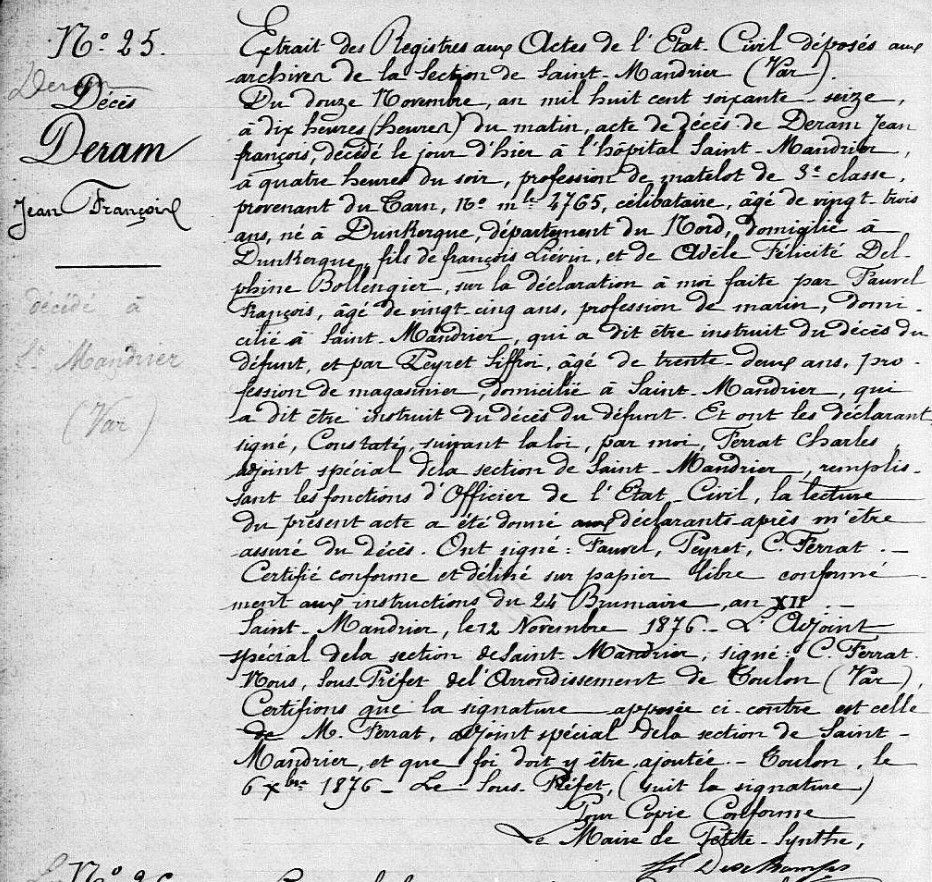 N.º 25.
Deram
Décès
Deram
Jean François
décédé à
St Mandrier
(Var)
Extrait des Registres aux Actes de l'Etat-Civil déposés aux
archives de la Section de Saint-Mandrier (Var).
Du douze Novembre, an mil huit cent soixante-seize,
à dix heures (heures) du matin, acte de décès de Deram Jean
françois, décédé le jour d'hier à l'hôpital Saint-Mandrier,
à quatre heures du soir, profession de matelot de 3e classe,
provenant du Tarn, No mle 4765, célibataire, âgé de vingt-trois
ans, né à Dunkerque, département du Nord, domicilié à
Dunkerque, fils de françois Liévin, et de Adèle Félicité Del-
phine Bollengier, sur la déclaration à moi faite par Fauvel
François, âgé de vingt-cinq ans, profession de marin, domi-
cilié à Saint-Mandrier, qui a dit être instruit du décès du
défunt, et par Peyret Siffroi, âgé de trente-deux ans, pro-
fession de magasinier, domicilié à Saint-Mandrier, qui
a dit être instruit du décès du défunt. Et ont les déclarant
signé, Constaté, suivant la loi, par moi, Ferrat Charles,
adjoint spécial de la section de Saint-Mandrier, remplis-
sant les fonctions d'Officier de l'Etat-Civil, la lecture
du présent acte a été donné aux déclarants après m'être
assuré du décès. Ont signé: Fauvel, Peyret, C. Ferrat. -
Certifié conforme et délivré sur papier libre conformé-
ment aux instructions du 24 Brumaire, an XII. -
Saint-Mandrier, le 12 Novembre 1876. - L'Adjoint
spécial de la section de Saint-Mandrier, signé: C. Ferrat.
Nous, Sous-Préfet de l'Arrondissement de Toulon (Var),
Certifions que la signature apposée ci contre est celle
de M. Ferrat, adjoint spécial de la section de Saint-
Mandrier, et que foi doit y être ajoutée. - Toulon, le
6 xbre 1876 - Le Sous-Préfet, (suit la signature)
Pour Copie Conforme
Le Maire de Petite-Synthe,